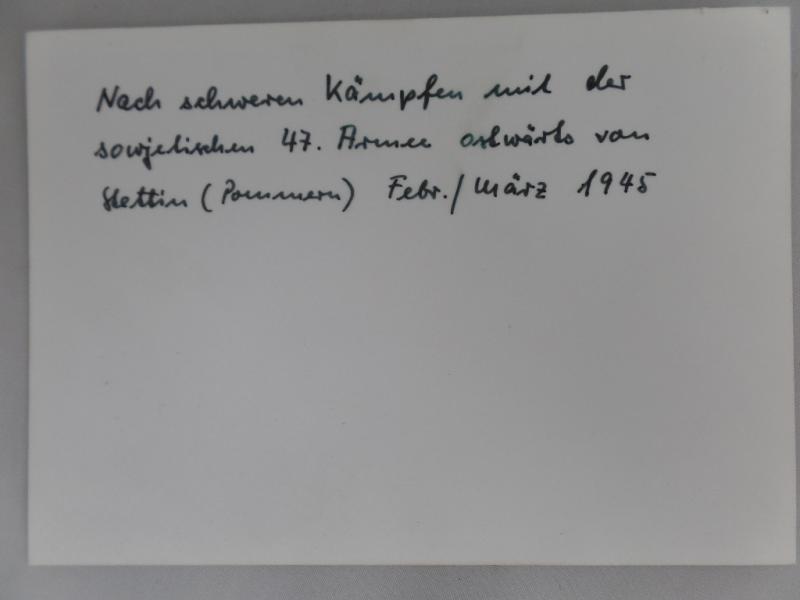 Nach schweren Kämpfen mit der
sowjetischen 47. Armee ostwärts von
Stettin (Pommern) Febr./März 1945